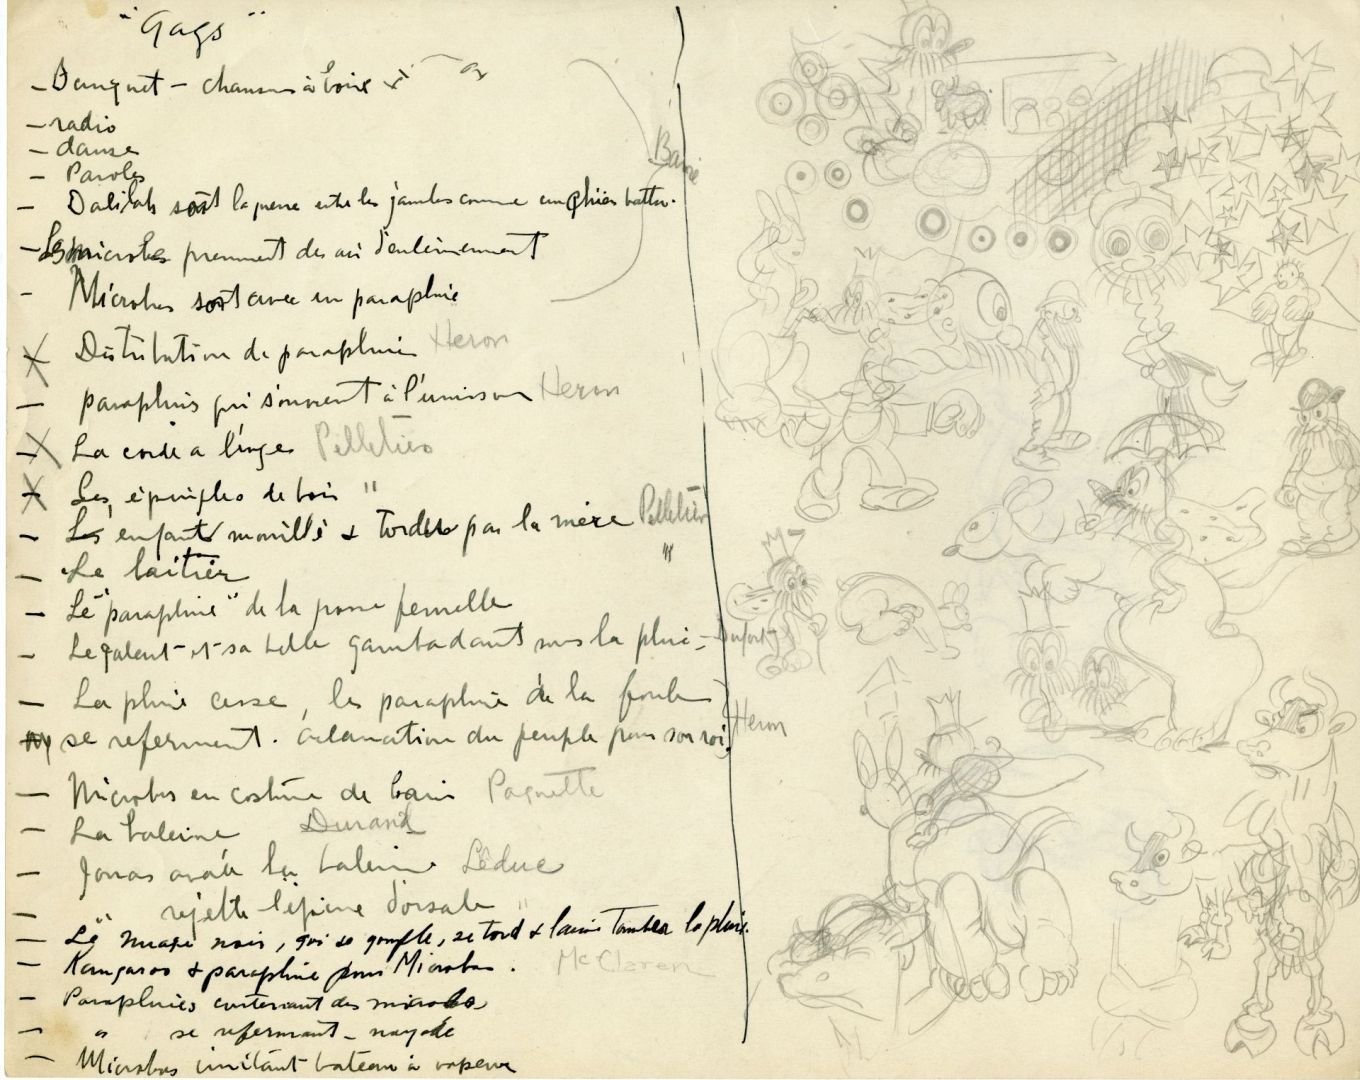 "Gags"
- Banquet - chansons à boire
- radio
- danse
- Paroles
- Dalilah sort la queue entre les jambes comme un chien battu.
Barré
- Les microbes prennent des airs d'enterrement
- Microbes sort avec un parapluie
Distribution de parapluie Heron
- parapluies qui s'ouvrent à l'unisson Heron
- La corde a linge Pelletier
- Les épingles de bois "
- Les enfants mouillé & tordus par la mère Pelletier
- Le laitier "
- Le "parapluie" de la femelle
- Le galant - et - sa belle gambadant sous la pluie - Dufort
- La pluie cesse, les parapluie de la foule
se referment. acclamation du peuple pour son roi, Heron
- Microbes en costume de bain Paquette
- La baleine Durand
- Jonas avale la baleine Leduc
- rejette l'épine dorsale "
- Le nuage noir, qui se gonfle, se tord & laisse tomber la pluie.
- Kangaroo & parapluie pour Microbes. McClaren
- Parapluies contenant des microbes
- " se refermant - noyade
- Microbes imitant bateau à vapeur